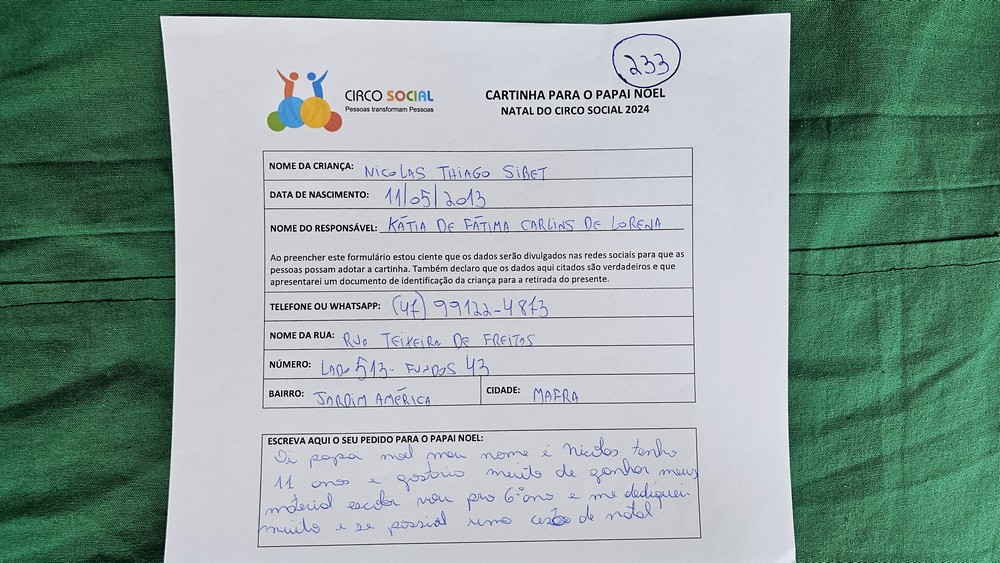 233
CIRCO SOCIAL
Pessoas transformam Pessoas
CARTINHA PARA O PAPAI NOEL
NATAL DO CIRCO SOCIAL 2024
NOME DA CRIANÇA: NICOLAS THIAGO SIBET
DATA DE NASCIMENTO: 11/05/2013
NOME DO RESPONSÁVEL: KÁTIA DE FÁTIMA CARLINS DE LORENA
Ao preencher este formulário estou ciente que os dados serão divulgados nas redes sociais para que as
pessoas possam adotar a cartinha. Também declaro que os dados aqui citados são verdadeiros e que
apresentarei um documento de identificação da criança para a retirada do presente.
TELEFONE OU WHATSAPP: (47) 99122-4873
NOME DA RUA: RUA TEIXEIRA DE FREITOS
NÚMERO: LADO 513- FUNDOS 43
BAIRRO: JARDIM AMÉRICA CIDADE: MAFRA
ESCREVA AQUI O SEU PEDIDO PARA O PAPAI NOEL:
Oi papa noel meu nome é Nicolas tenho
11 anos e gostario muito de ganhar meus
material escolar vou pro 6º ano e me dediquei
muito e se possial uma cesta de natal